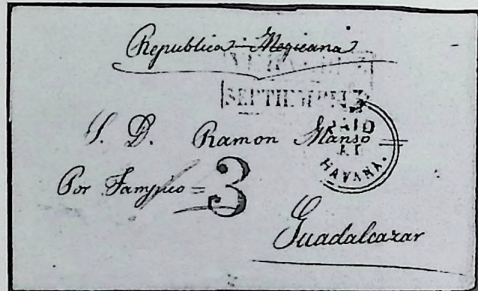 Republica Megicana
SEPTIEMBRE
S. D. Ramon Manso
PAID
AT
HAVANA.
Por Tampico = 3
Guadalcazar